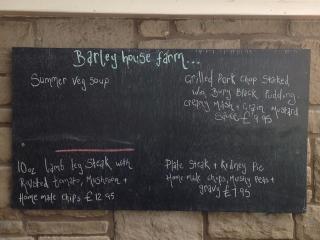 Barley house farm...
Summer veg soup
Grilled Pork Chop Stacked
w/ Bury Black Pudding.
creamy mash + Grain Mustard
Sauce £9.95
10oz Lamb leg Steak with
Roasted tomato, Mushroom +
Home made chips £12.95
Plate Steak + Kidney Pie
Home made chips, Mushy Peas +
gravy £7.95